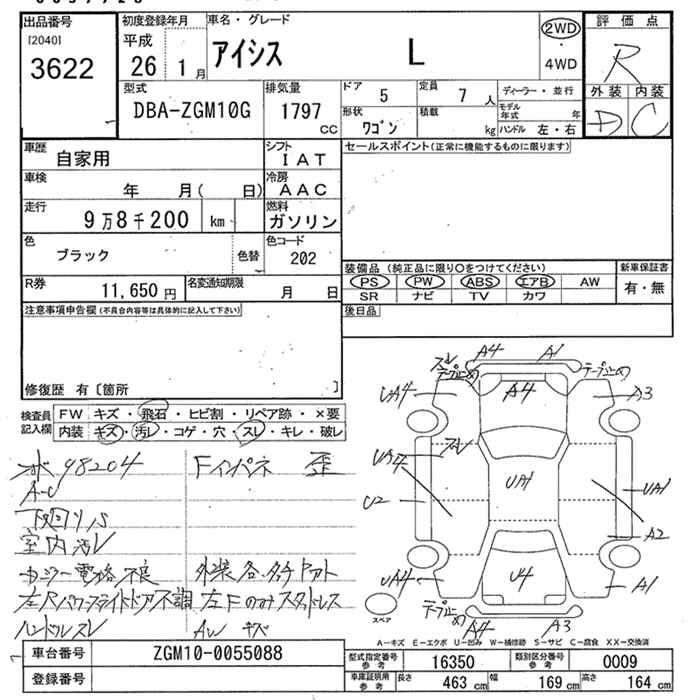 出品番号
[2040]
3622
初度登録年月
平成
26 1 月
車名・グレード
アイシス L
2WD
・
4WD
評価点
R
外装 内装
D C
型式
DBA-ZGM10G
排気量
1797
CC
ドア
5
定員
7 人
形状
ワゴン
積載
kg
ディーラー・並行
モデル年式 年
ハンドル 左・右
車歴
自家用
シフト
IAT
車検
年 月( 日)
冷房
AAC
走行
9万8千200 km
燃料
ガソリン
色
ブラック
色替
色コード
202
R券
11,650 円
名変通知期限
月 日
セールスポイント(正常に機能するものに限ります)
装備品 (純正品に限り○をつけてください)
新車保証書
PS PW ABS エアB AW
SR ナビ TV カワ
有・無
後日品
注意事項申告欄 (不具合内容等は具体的に記入して下さい)
修復歴 有〔箇所 〕
検査員記入欄
FW キズ・飛石・ヒビ割・リペア跡・×要
内装 キズ・汚レ・コゲ・穴・スレ・キレ・破レ
98204
Fインパネ 歪
A-C
下廻リS
室内汚レ
ミラー電格不良
左Rパワースライドドア不調
左Fのみスタッドレス
ハンドルスレ
AW キズ
スレ
A4
A1
テープ止め
テープ止め
UA4
A4
A3
スレ
UA4
UA1
UA1
U2
A2
UA4
U4
A1
スペア
テープ止め
A4
A3
A-キズ E-エクボ U-凹み W-補修跡 S-サビ C-腐食 XX-交換済
車台番号
ZGM10-0055088
登録番号
型式指定番号
参考
16350
類別区分番号
参考
0009
車庫証明用
参考
長さ
463 cm
幅
169 cm
高さ
164 cm